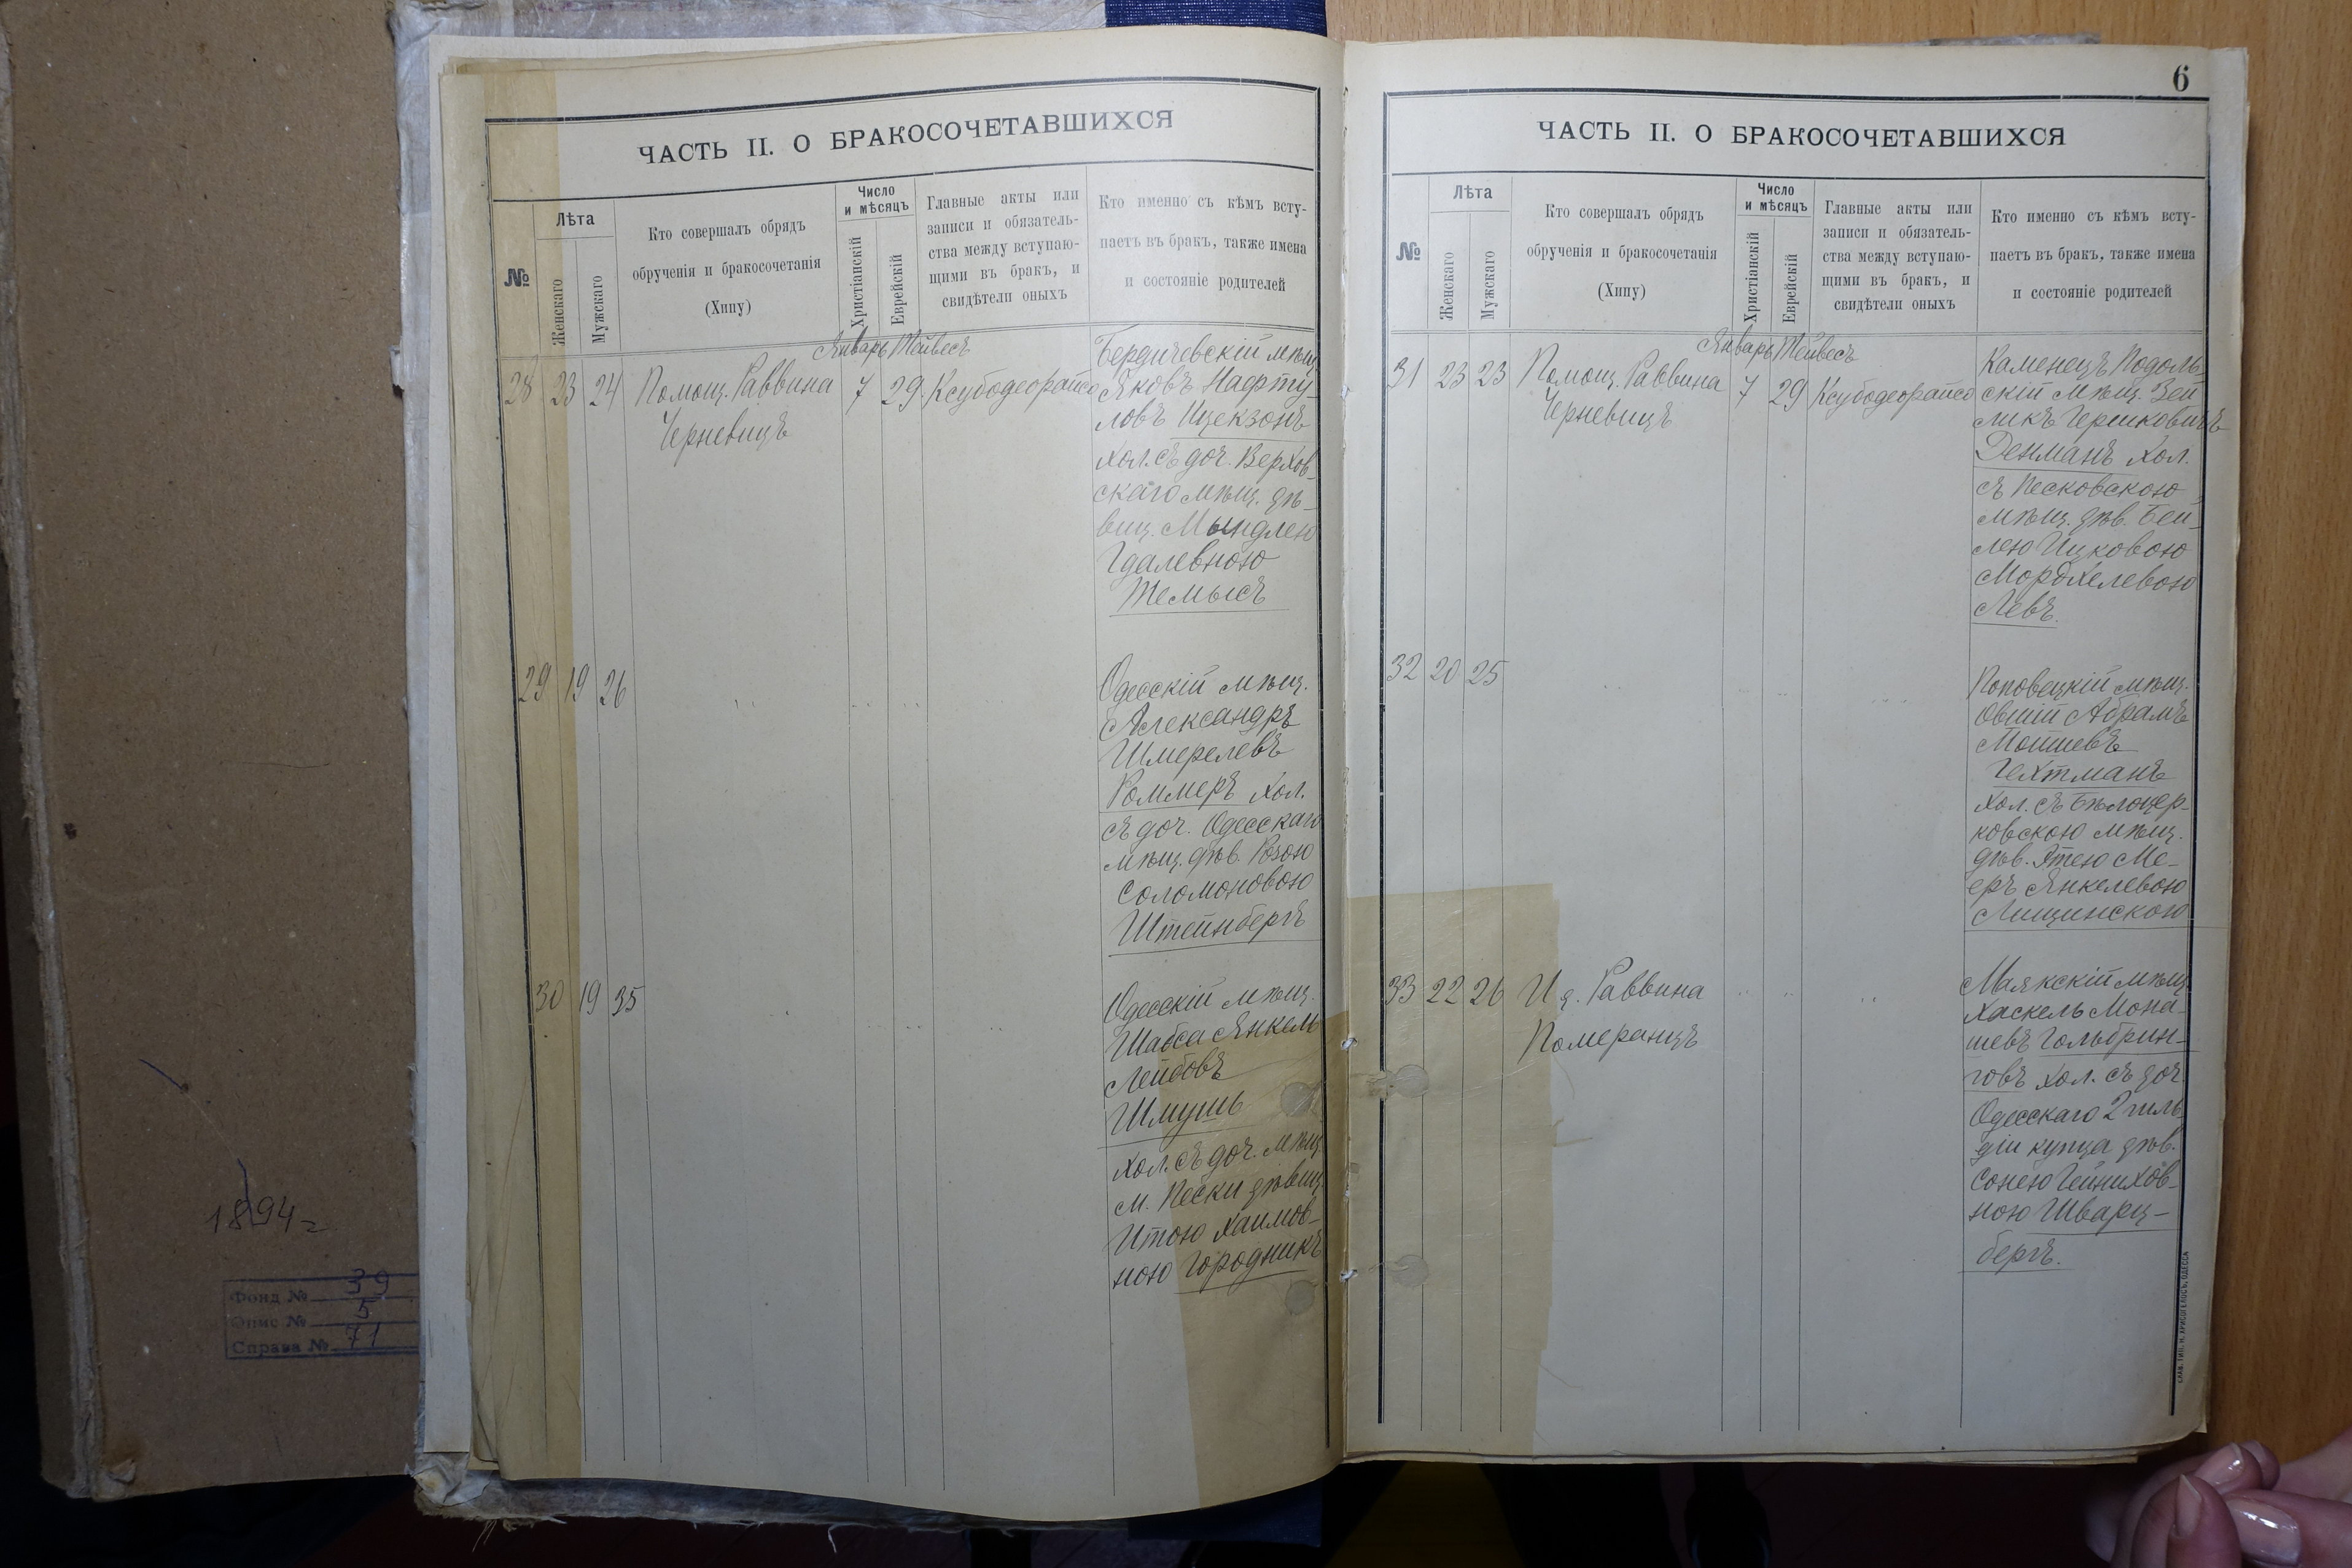 ЧАСТЬ II. О БРАКОСОЧЕТАВШИХСЯ
№
Лѣта
Женскаго
Мужскаго
Кто совершалъ обрядъ
обрученія и бракосочетанія
(Хипу)
Число
и мѣсяцъ
Христіанскій
Еврейскій
Главные акты или
записи и обязатель-
ства между вступаю-
щими въ бракъ, и
свидѣтели оныхъ
Кто именно съ кѣмъ всту-
паетъ въ бракъ, также имена
и состояніе родителей
Январь Тейвесъ
28 23 24 Помощ. Раввина 7 29 Ксубодеорайсо
Черневицъ
Бердичевскій мѣщ.
Яковъ Нафту-
ловъ Ицекзонъ
хол. съ доч. Верхов-
скаго мѣщ. дѣ-
виц. Мындлею
Гдалевною
Темысъ
29 19 26
Одесскій мѣщ.
Александръ
Шмерелевъ
Роммеръ хол.
съ доч. Одесскаго
мѣщ. дѣв. Розою
Соломоновою
Штейнбергъ
30 19 35
Одесскій мѣщ.
Шабса Янкель
Лейбовъ
Шмушь
хол. съ доч. мѣщ.
м. Пески дѣвиц.
Итою Хаимов-
ною Городникъ
6
ЧАСТЬ II. О БРАКОСОЧЕТАВШИХСЯ
№
Лѣта
Женскаго
Мужскаго
Кто совершалъ обрядъ
обрученія и бракосочетанія
(Хипу)
Число
и мѣсяцъ
Христіанскій
Еврейскій
Главные акты или
записи и обязатель-
ства между вступаю-
щими въ бракъ, и
свидѣтели оныхъ
Кто именно съ кѣмъ всту-
паетъ въ бракъ, также имена
и состояніе родителей
Январь Тейвесъ
31 23 23 Помощ. Раввина 7 29 Ксубодеорайсо
Черневицъ
Каменецъ Подоль-
скій мѣщ. Зей-
ликъ Гершковичъ
Денманъ хол.
съ Песковскою
мѣщ. дѣв. Бей-
лею Ицковою
Мордхелевою
Левъ.
32 20 25
Поповецкій мѣщ.
Овшій Абрамъ
Мошневъ
Гехтманъ
хол. съ Бѣлоцер-
ковскою мѣщ.
дѣв. Этею Ме-
еръ Янкелевою
Лищинскою
33 22 26 И д. Раввина
Померанцъ
Маякскій мѣщ.
Хаскель Мона-
шевъ Гольбрин-
говъ хол. съ доч.
Одесскаго 2 гиль
діи купца дѣв.
Сонею Гейнихов-
ною Шварц-
бергъ.
СЛАВ. ТИП. Н. ХРИСОГЕЛОСЪ, ОДЕССА
1894 г
Фонд № 39
Опис № 5
Справа № 71